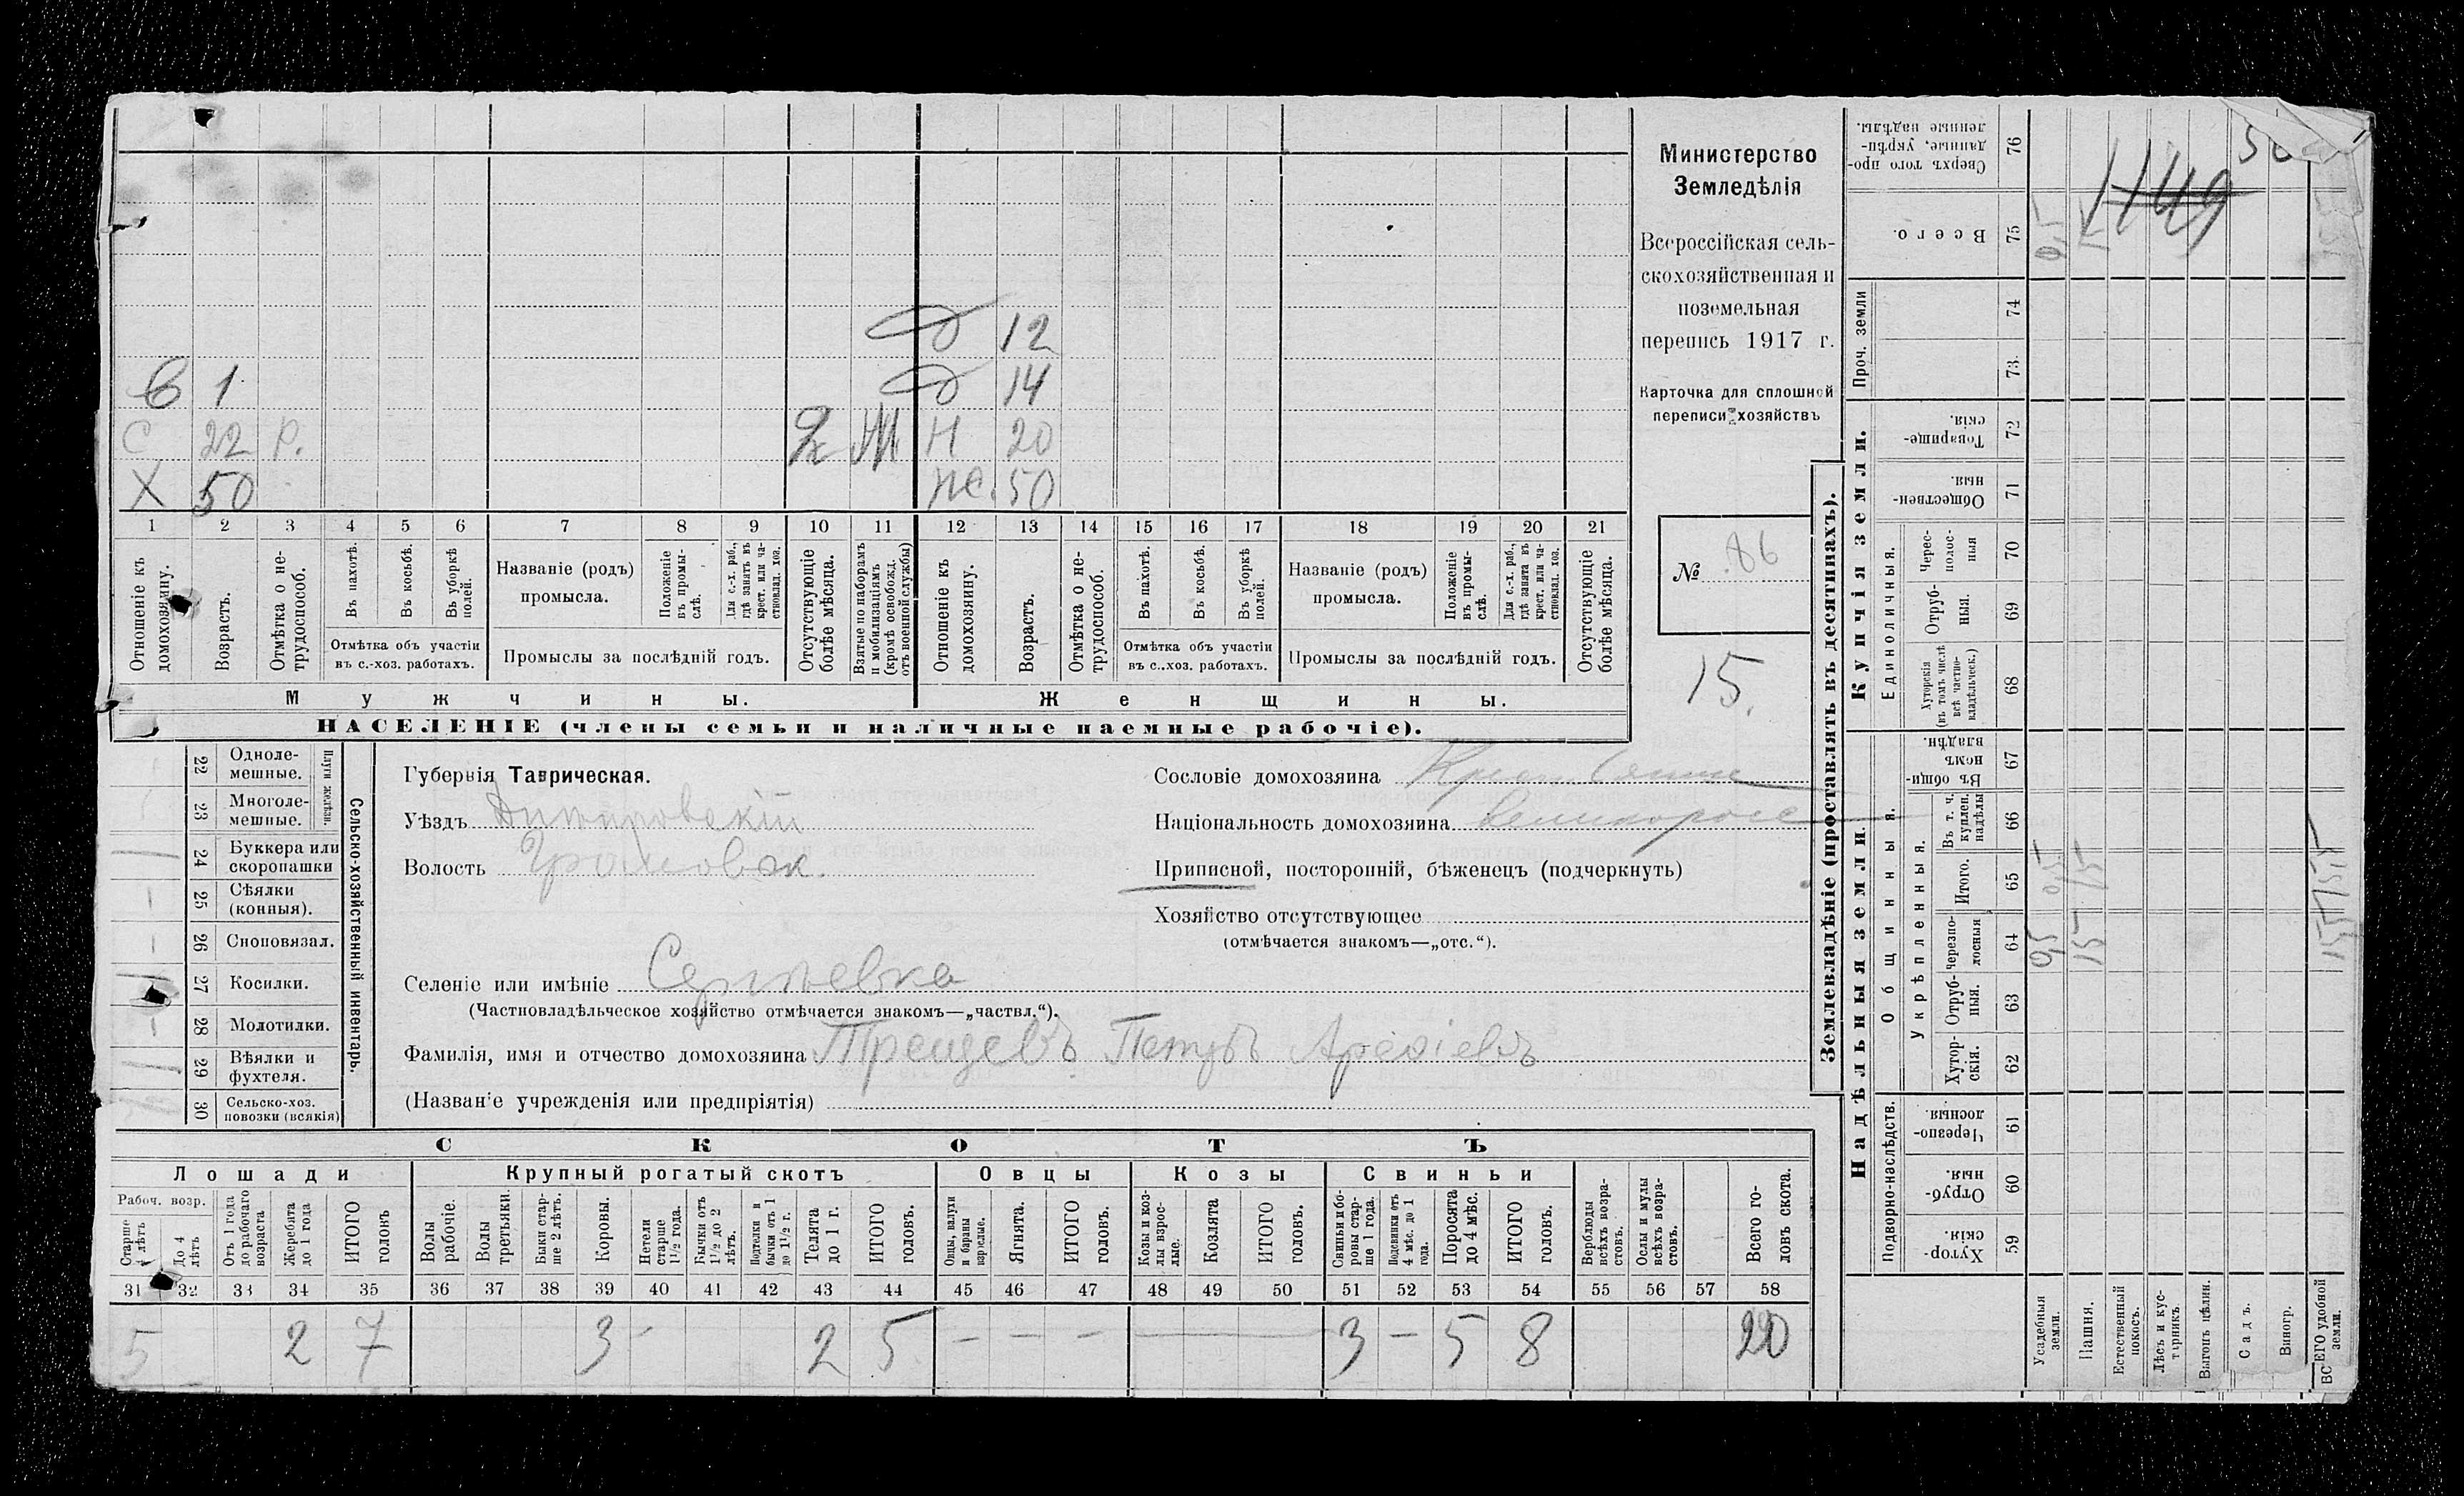 Министерство
Земледѣлія
Всероссійская сель-
скохозяйственная и
поземельная
перепись 1917 г.
Карточка для сплошной
переписи хозяйствъ
№ 86
15.
д 12
в 1 д 14
с 22 р. Н 20
Х 50 же. 50
1 2 3 4 5 6 7 8 9 10 11 12 13 14 15 16 17 18 19 20 21
Отношеніе къ домохозяину.
Возрастъ.
Отмѣтка о не-трудоспособ.
Въ пахотѣ.
Въ косьбѣ.
Въ уборкѣ полей.
Отмѣтка объ участіи въ с.-хоз. работахъ.
Названіе (родъ) промысла.
Положеніе въ промы-слѣ.
Для с.-х. раб., гдѣ занятъ въ крест. или ча-стновлад. хоз.
Промыслы за послѣдній годъ.
Отсутствующіе болѣе мѣсяца.
Взятые по наборамъ и мобилизаціямъ (кромѣ освобожд. отъ военной службы)
Отношеніе къ домохозяину.
Возрастъ.
Отмѣтка о не-трудоспособ.
Въ пахотѣ.
Въ косьбѣ.
Въ уборкѣ полей.
Отмѣтка объ участіи въ с.-хоз. работахъ.
Названіе (родъ) промысла.
Положеніе въ промы-слѣ.
Для с.-х. раб., гдѣ занята въ крест. или ча-стновлад. хоз.
Промыслы за послѣдній годъ.
Отсутствующіе болѣе мѣсяца.
Мужчины. Женщины.
НАСЕЛЕНІЕ (члены семьи и наличные наемные рабочіе).
22 Одноле-мешные.
23 Многоле-мешные.
Плуги желѣзн.
24 Буккера или скоропашки
25 Сѣялки (конныя).
26 Сноповязал.
27 Косилки.
28 Молотилки.
29 Вѣялки и фухтеля.
30 Сельско-хоз. повозки (всякія)
Сельско-хозяйственный инвентарь.
Губернія Таврическая.
Уѣздъ Днѣпровскій
Волость Громовск.
Сословіе домохозяина
Національность домохозяина Великороссъ
Приписной, посторонній, бѣженецъ (подчеркнуть)
Хозяйство отсутствующее
(отмѣчается знакомъ—„отс.“).
Селеніе или имѣніе Сергѣевка
(Частновладѣльческое хозяйство отмѣчается знакомъ—„частвл.“).
Фамилія, имя и отчество домохозяина Трещевъ Петръ
(Названіе учрежденія или предпріятія)
СКОТЪ
Лошади Крупный рогатый скотъ Овцы Козы Свиньи
Рабоч. возр.
Старше 4 лѣтъ
До 4 лѣтъ
Отъ 1 года до рабочаго возраста
Жеребята до 1 года
ИТОГО головъ
Волы рабочіе.
Волы третьяки.
Быки стар-ше 2 лѣтъ.
Коровы.
Нетели старше 1½ года.
Бычки отъ 1½ до 2 лѣтъ.
Подтелки и бычки отъ 1 до 1½ г.
Телята до 1 г.
ИТОГО головъ.
Овцы, валухи и бараны взрослые.
Ягнята.
ИТОГО головъ.
Козы и коз-лы взрос-лые.
Козлята
ИТОГО головъ.
Свиньи и бо-ровы стар-ше 1 года.
Подсвинки отъ 4 мѣс. до 1 года.
Поросята до 4 мѣс.
ИТОГО головъ.
Верблюды всѣхъ возра-стовъ.
Ослы и мулы всѣхъ возра-стовъ.
Всего го-ловъ скота.
31 32 33 34 35 36 37 38 39 40 41 42 43 44 45 46 47 48 49 50 51 52 53 54 55 56 57 58
5 2 7 3 - 2 5 - - - 3 - 5 8 20
Землевладѣніе (проставлять въ десятинахъ).
Надѣльныя земли. Купчія земли. Проч. земли
Подворно-наслѣдств. Общинныя. Укрѣпленныя. Единоличныя.
Хутор-скія. 59
Отруб-ныя. 60
Черезпо-лосныя. 61
Хутор-скія. 62
Отруб-ныя. 63
Черезпо-лосныя 64
Итого. 65
Въ т. ч. куплен. надѣлы 66
Въ общи-номъ владѣн. 67
Хуторскія (въ томъ числѣ всѣ частно-владѣльческ.) 68
Отруб-ныя. 69
Черес-полос-ныя 70
Обществен-ныя. 71
Товарище-скія. 72
73.
74
Всего. 75
Сверхъ того про-данные, укрѣп-ленные надѣлы. 76
Усадебныя земли.
Пашня.
Естественный покосъ.
Лѣсъ и кус-тарникъ.
Выгонъ цѣлин.
Садъ.
Виногр.
ВСЕГО удобной земли.
0,5 0,5 0,5
15 15
1149